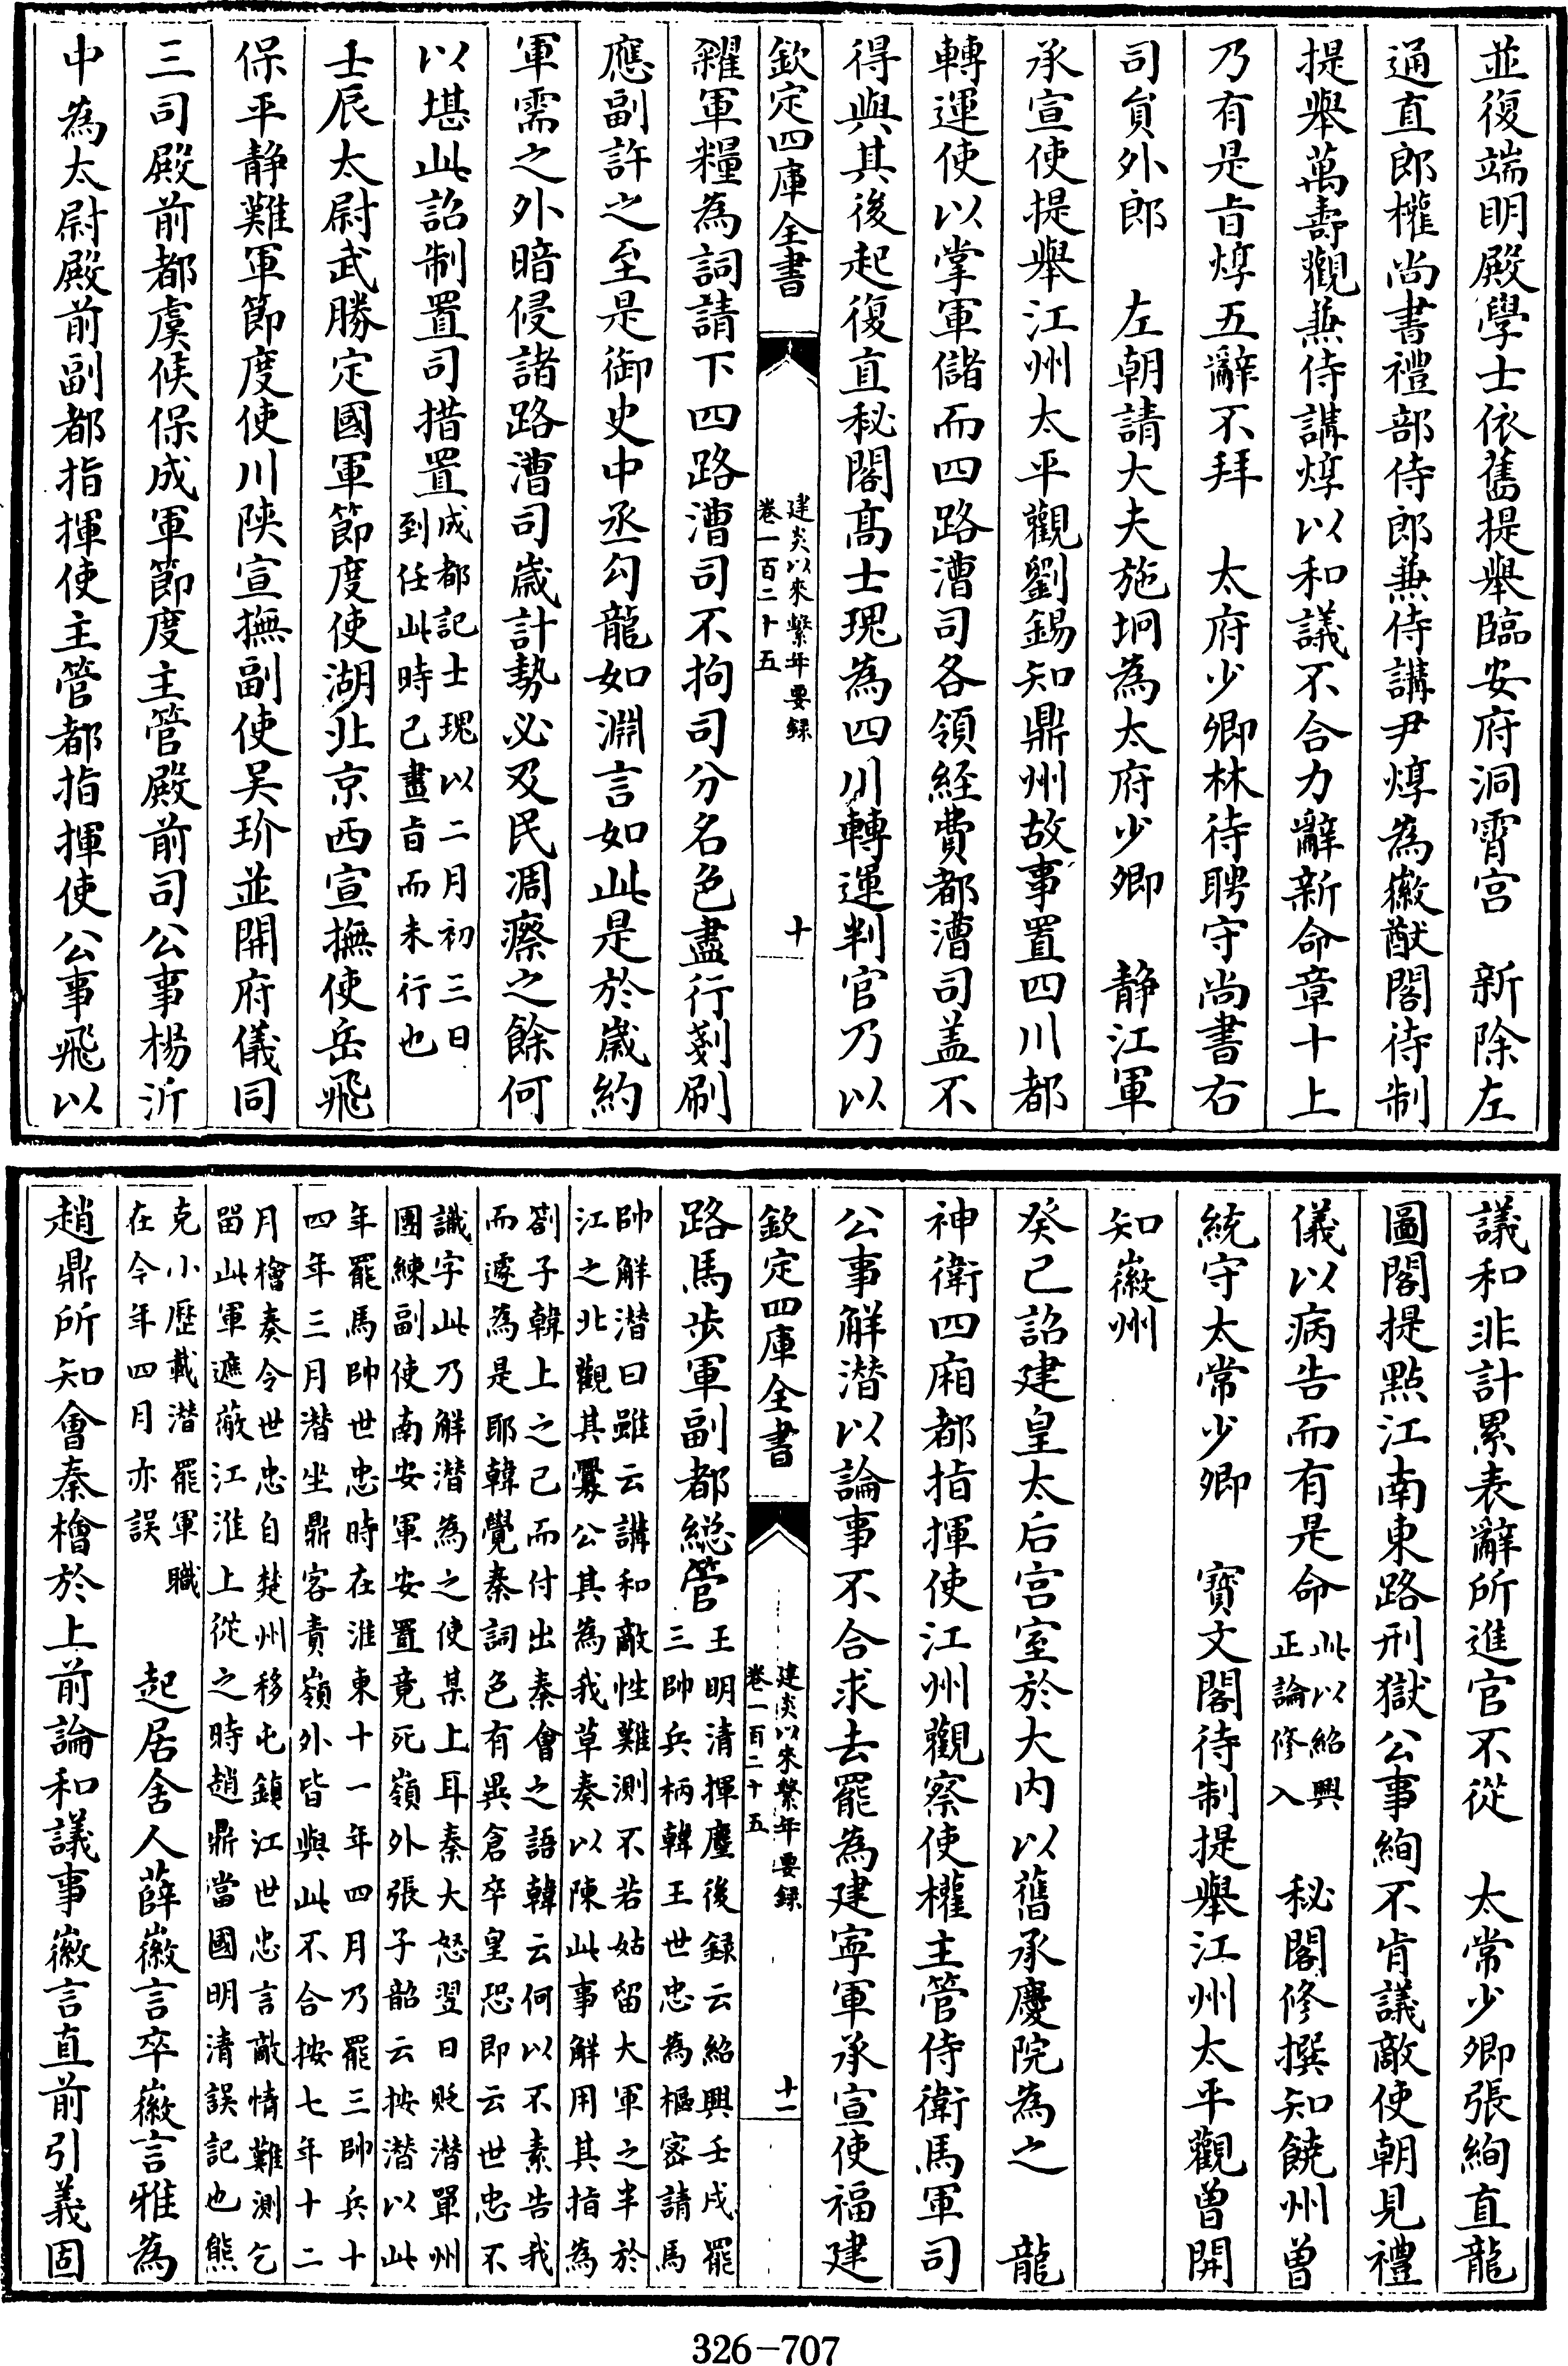 並復端明殿學士依舊提舉臨安府洞霄宫　新除左
通直郎權尚書禮部侍郎兼侍講尹焞為徽猷閣待制
提舉萬壽觀兼侍講焞以和議不合力辭新命章十上
乃有是旨焞五辭不拜　太府少卿林待聘守尚書右
司員外郎　左朝請大夫施坰為太府少卿　静江軍
承宣使提舉江州太平觀劉錫知鼎州故事置四川都
轉運使以掌軍儲而四路漕司各領經費都漕司盖不
得與其後起復直秘閣髙士瑰為四川轉運判官乃以
欽定四庫全書
建炎以來繫年要録
卷一百二十五
十
糴軍糧為詞請下四路漕司不拘司分名色盡行剗刷
應副許之至是御史中丞勾龍如淵言如此是於歲約
軍需之外暗侵諸路漕司歲計勢必及民凋瘵之餘何
以堪此詔制置司措置成都記士瑰以二月初三日
到任此時已畫旨而未行也
壬辰太尉武勝定國軍節度使湖北京西宣撫使岳飛
保平静難軍節度使川陝宣撫副使吴玠並開府儀同
三司殿前都虞候保成軍節度主管殿前司公事楊沂
中為太尉殿前副都指揮使主管都指揮使公事飛以
議和非計累表辭所進官不從　太常少卿張絢直龍
圖閣提點江南東路刑獄公事絢不肯議敵使朝見禮
儀以病告而有是命此以紹興
正論修入　秘閣修撰知饒州曾
統守太常少卿　寶文閣待制提舉江州太平觀曾開
知徽州
癸己詔建皇太后宫室於大内以舊承慶院為之　龍
神衛四廂都指揮使江州觀察使權主管侍衛馬軍司
公事解潜以論事不合求去罷為建寧軍承宣使福建
欽定四庫全書
建炎以來繫年要録
卷一百二十五
十一
路馬歩軍副都總管王明清揮麈後録云紹興壬戌罷
三帥兵柄韓王世忠為樞宻請馬
帥解潜曰雖云講和敵性難測不若姑留大軍之半於
江之北觀其釁公其為我草奏以陳此事解用其指為
劄子韓上之已而付出秦會之語韓云何以不素告我
而遽為是耶韓覺秦詞色有異倉卒皇恐即云世忠不
識字此乃解潜為之使某上耳秦大怒翌日貶潜單州
團練副使南安軍安置竟死嶺外張子韶云按潜以此
年罷馬帥世忠時在淮東十一年四月乃罷三帥兵十
四年三月潜坐鼎客責嶺外皆與此不合按七年十二
月檜奏令世忠自楚州移屯鎮江世忠言敵情難測乞
留此軍遮蔽江淮上從之時趙鼎當國明清誤記也熊
克小歴載潜罷軍職
在今年四月亦誤　起居舍人薛徽言卒徽言雅為
趙鼎所知會秦檜於上前論和議事徽言直前引義固
326-707